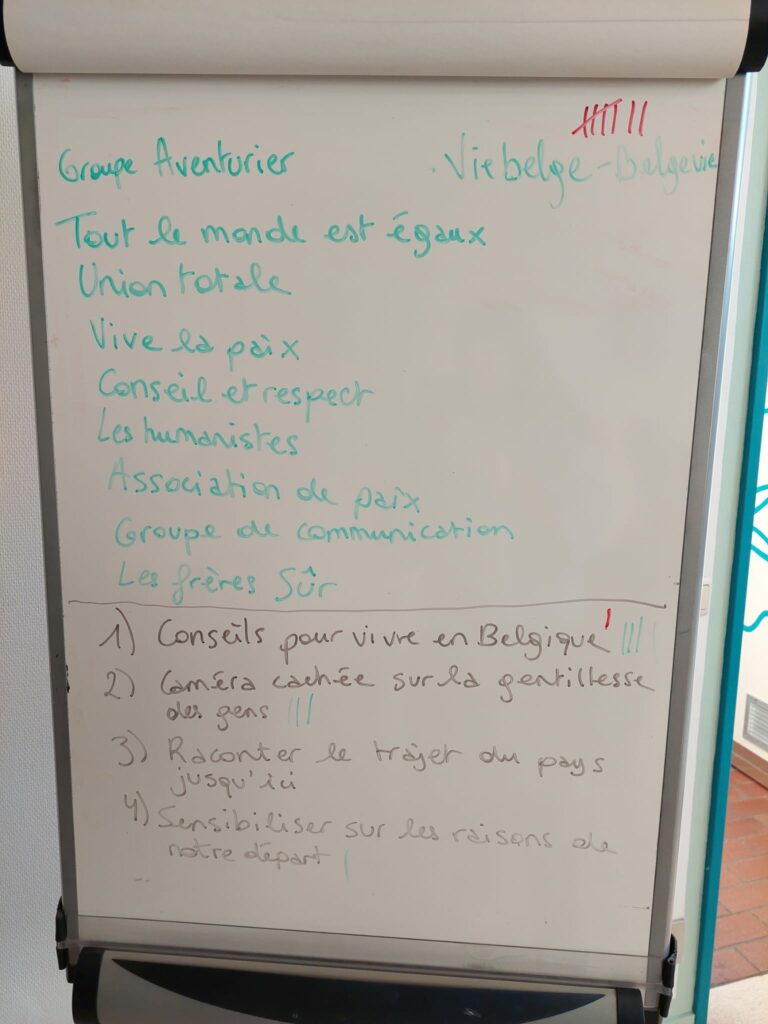 Groupe Aventurier
Viebelge-Belgevie
Tout le monde est égaux
Union totale
Vive la paix
Conseil et respect
Les humanistes
Association de paix
Groupe de communication
Les frères Sûr
1) Conseils pour vivre en Belgique
2) Caméra cachée sur la gentillesse
des gens
3) Raconter le trajet du pays
jusqu'ici
4) Sensibiliser sur les raisons de
notre départ